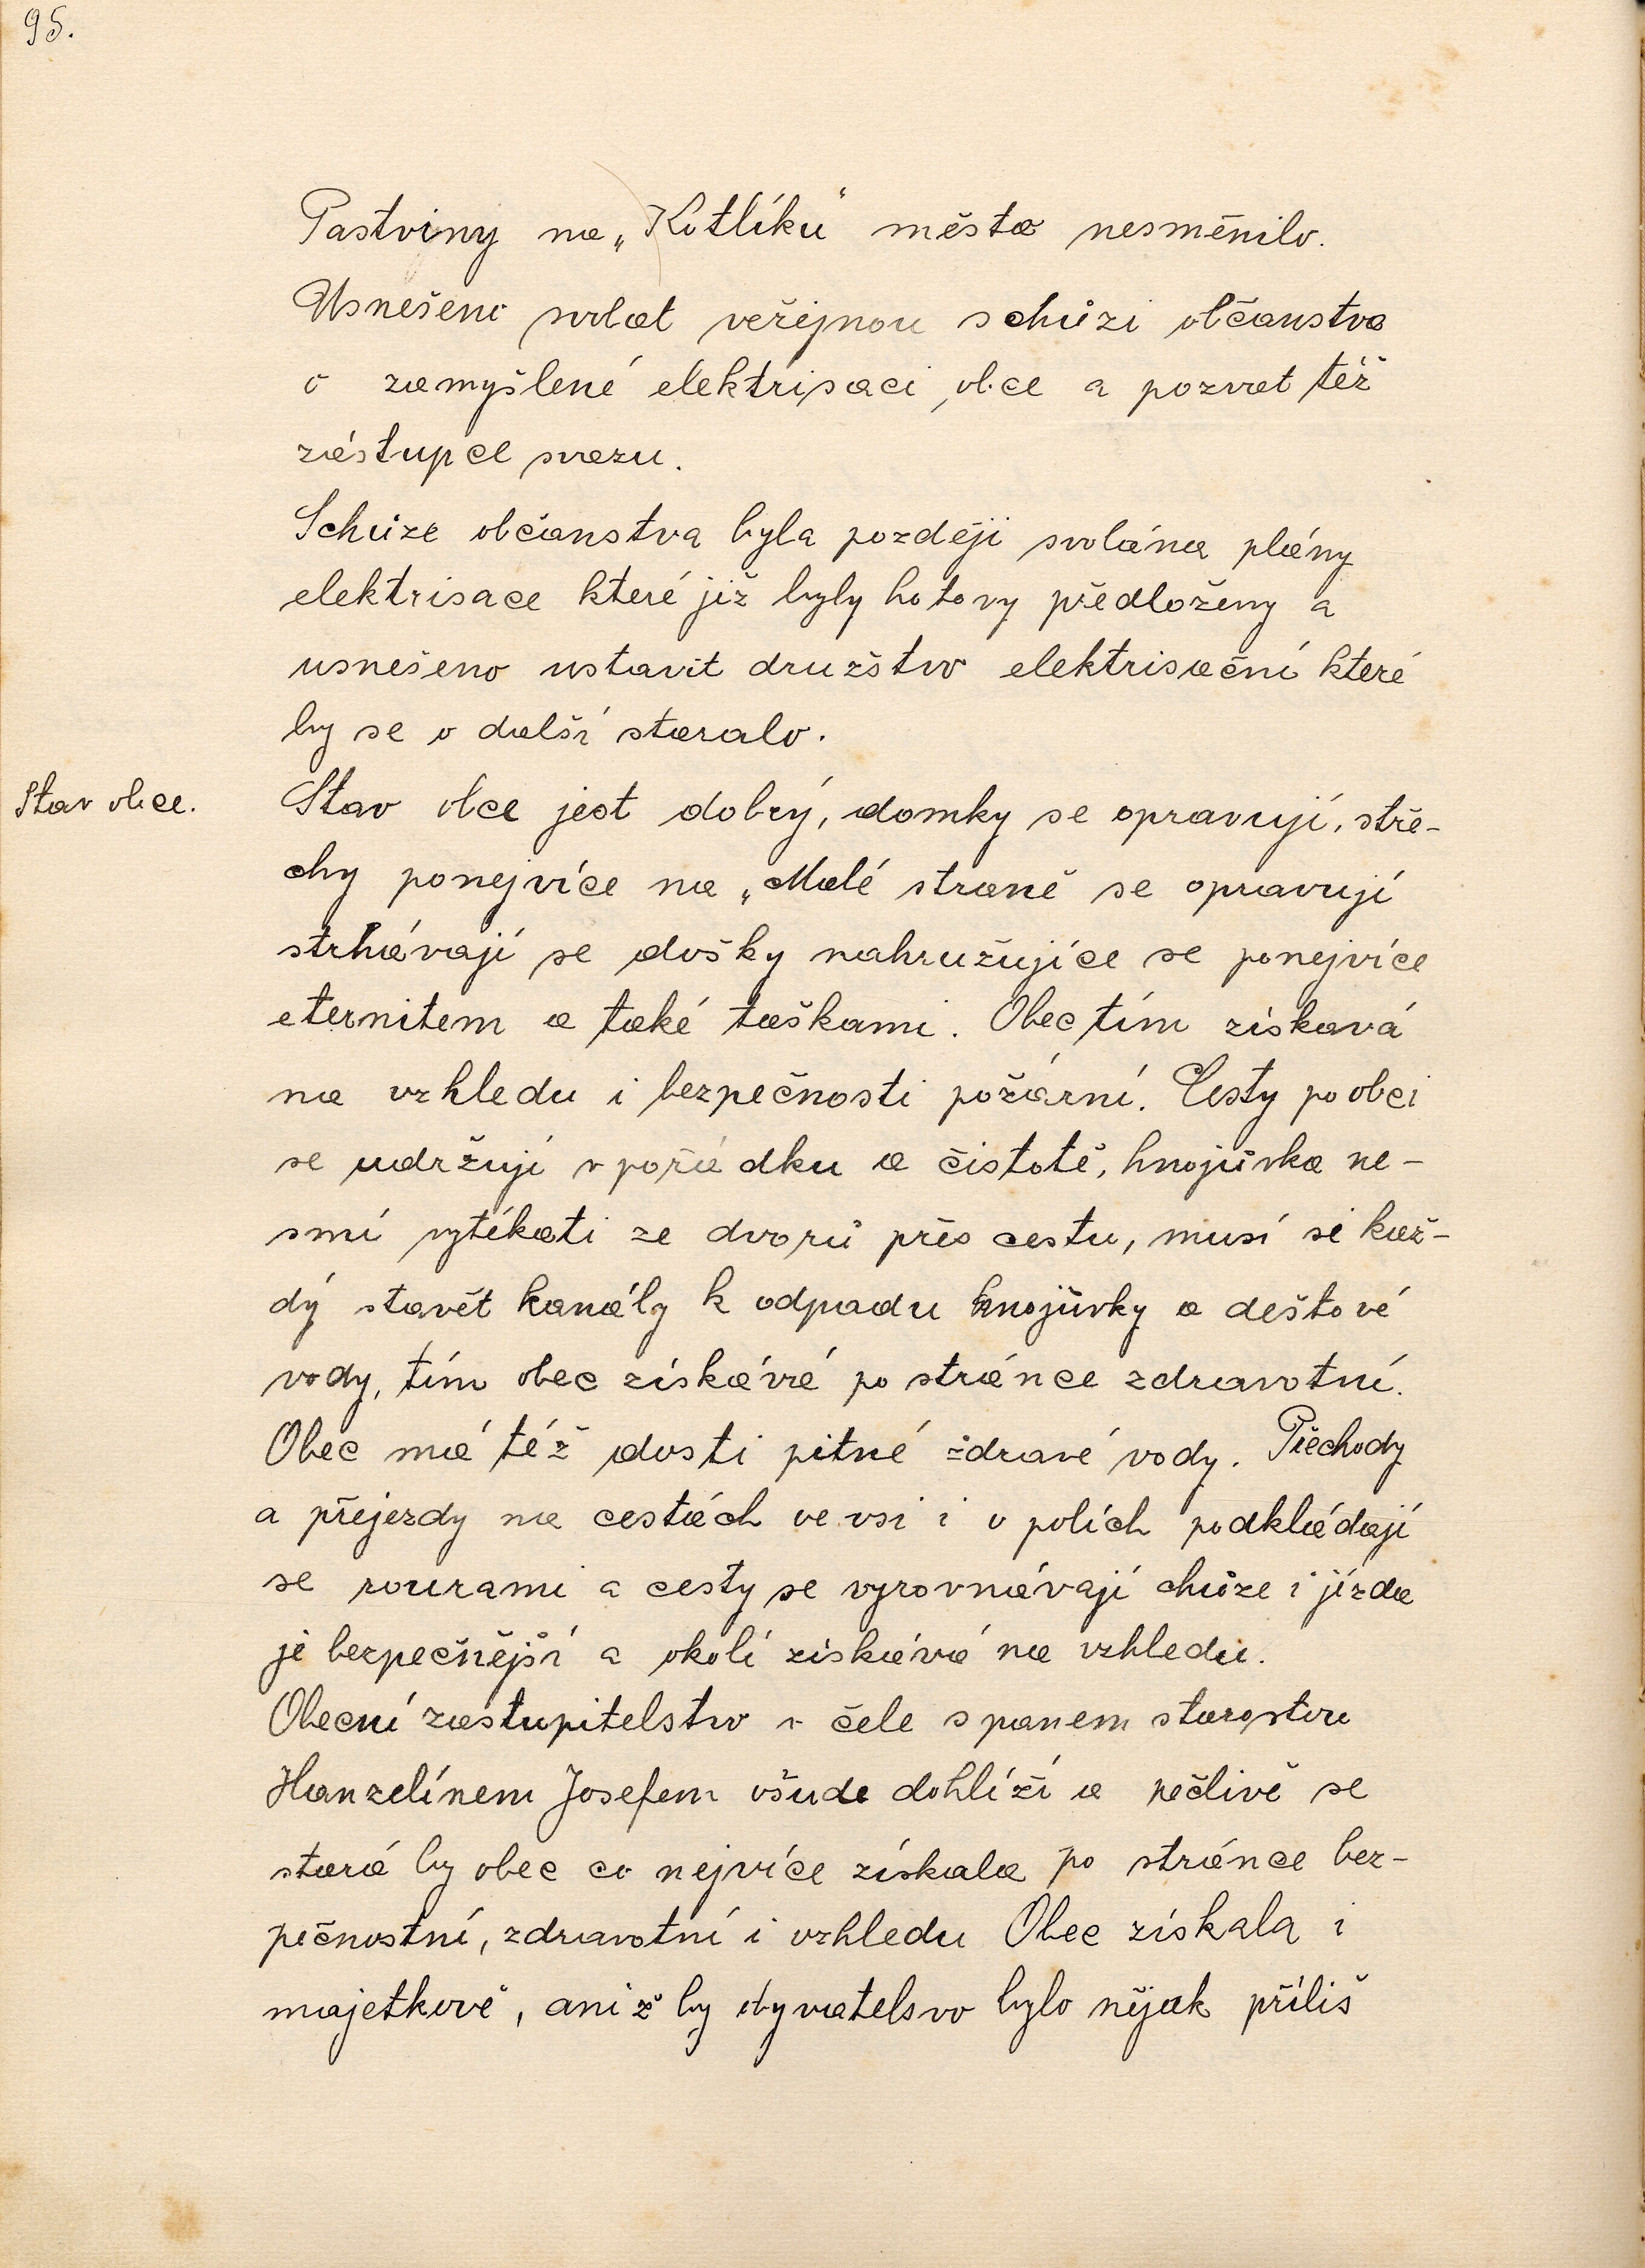 95.
Pastviny na „Kotlíku“ město nesměnilo.
Usnešeno svolat veřejnou schůzi občanstva
o zamyšlené elektrisaci obce a pozvat též
zástupce svazu.
Schůze občanstva byla později svolána plány
elektrisace které již byly hotovy předloženy a
usnešeno ustavit družstvo elektrisační které
by se o další staralo.
Stav obce.
Stav obce jest dobrý, domky se opravují, stře-
chy ponejvíce na „Malé straně se opravují
strhávají se došky nahružujíce se ponejvíce
eternitem a také taškami. Obec tím získavá
na vzhledu i bezpečnosti požární. Cesty po obci
se udržují v pořádku a čistotě, hnojůvka ne-
smí vytékati ze dvorů přes cestu, musí si kaž-
dý stavět kanály k odpadu hnojůvky a deštové
vody, tím obec získává po stránce zdravotní.
Obec má též dosti pitné zdravé vody. Přechody
a přejezdy na cestách ve vsi i v polích podkládají
se rourami a cesty se vyrovnávají chůze i jízda
je bezpečnější a okolí získává na vzhledu.
Obecní zastupitelstvo v čele s panem starostou
Hanzelínem Josefem všude dohlíží a pečlivě se
stará by obec co nejvíce získala po stránce bez-
pečnostní, zdravotní i vzhledu Obec získala i
majetkově, aniž by obyvatelsvo bylo nějak příliš